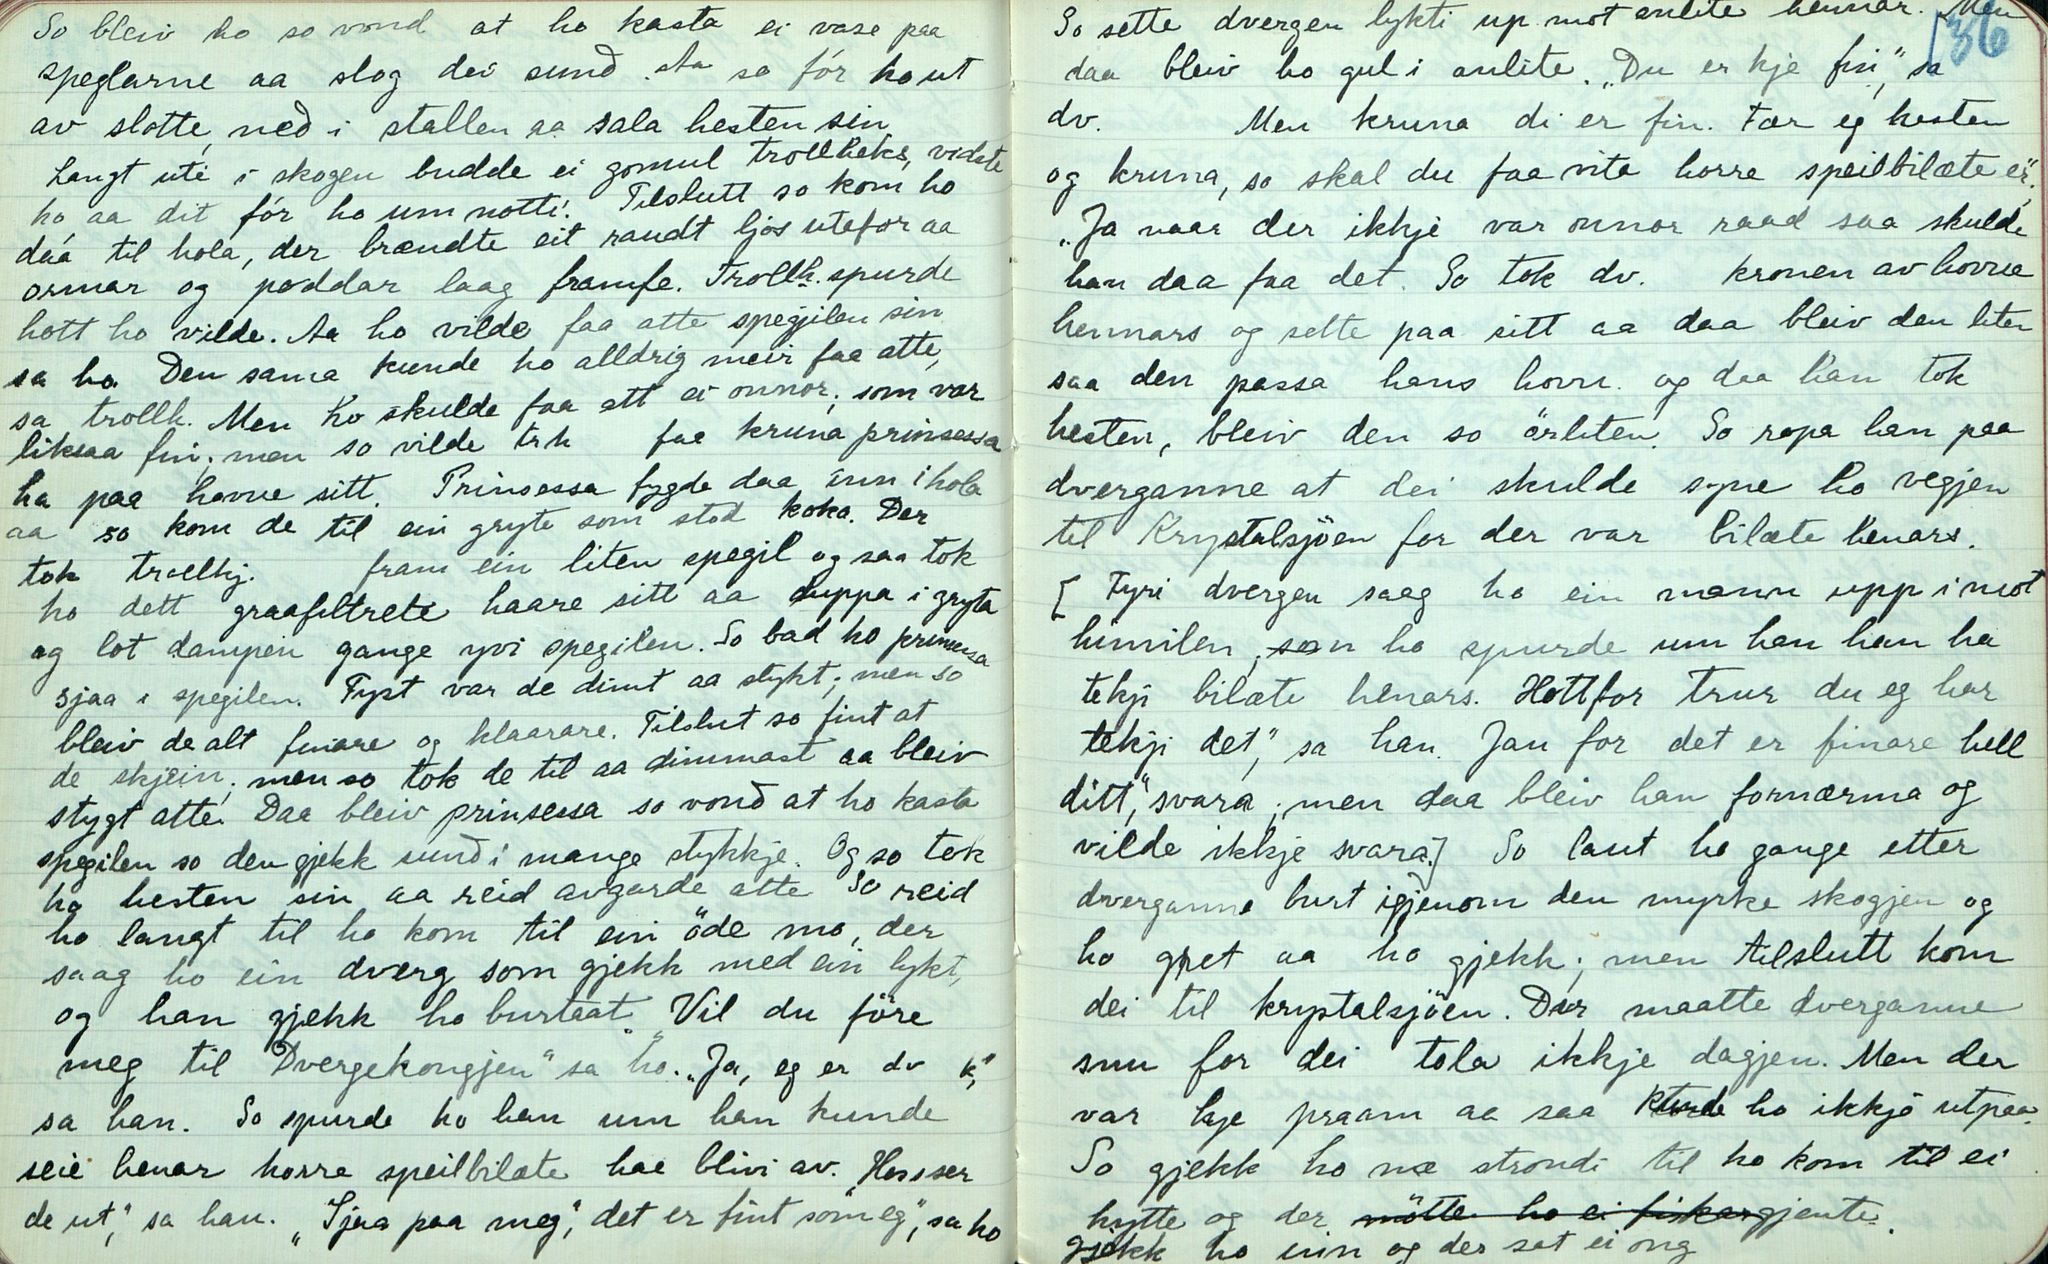 So bleiv ho so vond at ho kasta ei vase paa
speglarne aa slog dei sunð. Aa so fór ho ut
av slotte, neð i stallen aa sala hesten sin
Langt uti i skogen budde ei gomul trollheks, vidste
ho, aa dit fór ho um notti. Tilslutt so kom ho
daa til hola, der brændte eit raudt ljos utefor aa
ormar og poddar laag framfe. Trollh. spurde
hott ho vilde. Aa ho vilde faa atte spegjilen sin
sa ho. Den sama kunde ho alldrig meir faa atte,
sa trollh. Men ho skulde faa ett ei onnor, som var
liksaa fin; men so vilde trh faa kruna prinsessa
ha paa hovue sitt. Prinsessa fygde daa inn i hola
aa so kom de til ein gryte som stod koka. Der
tok trollkj. fram ein liten spegil og saa tok
ho dett graafiltrete haare sitt aa duppa i gryta
og lot dampen gange yvi spegilen. So bad ho prinsessa
sjaa i spegilen. Fyst var de dimt aa stykt; men so
bleiv de alt finare og klaarare. Tilslut so fint at
de skjein; men so tok de til aa dimmast aa bleiv
stygt atte. Daa bleiv prinsessa so vonð at ho kasta
spegilen so den gjekk sunð i mange stykkje. Og so tok
ho hesten sin aa reid avgarde atte So reid
ho langt til ho kom til ein öde mo, der
saag ho ein dverg som gjekk med ein lykt,
og han gjekk ho burtaat. "Vil du före
meg til Dvergekongjen" sa ho. "Ja, eg er dv k",
sa han. So spurde ho han um han kunde
seie henar horre speilbilæte hae blivi av. "Hosser
de ut," sa han. "Sjaa paa meg", det er fint som eg", sa ho
So sette dvergen lykti up mot anlite hennar. Men
36
daa bleiv ho gul i anlite. "Du er kje fin", sa
dv. Men kruna di er fin. Fær eg hesten
og kruna, so skal du faa vita horre speilbilæte er".
"Ja naar der ikkje var onnor raad saa skulde
han daa faa det. So tok dv. kronen av hovue
hennars og sette paa sitt aa daa bleiv den liten
saa den passa hans hovu. og daa han tok
hesten, bleiv den so örliten. So ropa han paa
dverganne at dei skulde syne ho vegjen
til Krystalsjöen for der var bilæte henars.
[ Fyri dvergen saag ho ein mann upp i mot
himilen, som ho spurde um han han ha
tekji bilæte henars. Hottfor trur du eg har
tekji det", sa han. Jau for det er finare hell
ditt", svara; men daa bleiv han fornærma og
vilde ikkje svara.] So laut ho gange etter
dverganne burt igjenom den myrke skogjen og
ho gret aa ho gjekk; men tilslutt kom
dei til krystalsjöen. Der maatte dverganne
snu for dei tola ikkje dagjen. Men der
var kje praam aa saa kunde ho ikkje utpaa.
So gjekk ho næ strondi til ho kom til ei
hytte og der mötte ho ei fiskargjente.
gjekk ho inn og der sat ei ong